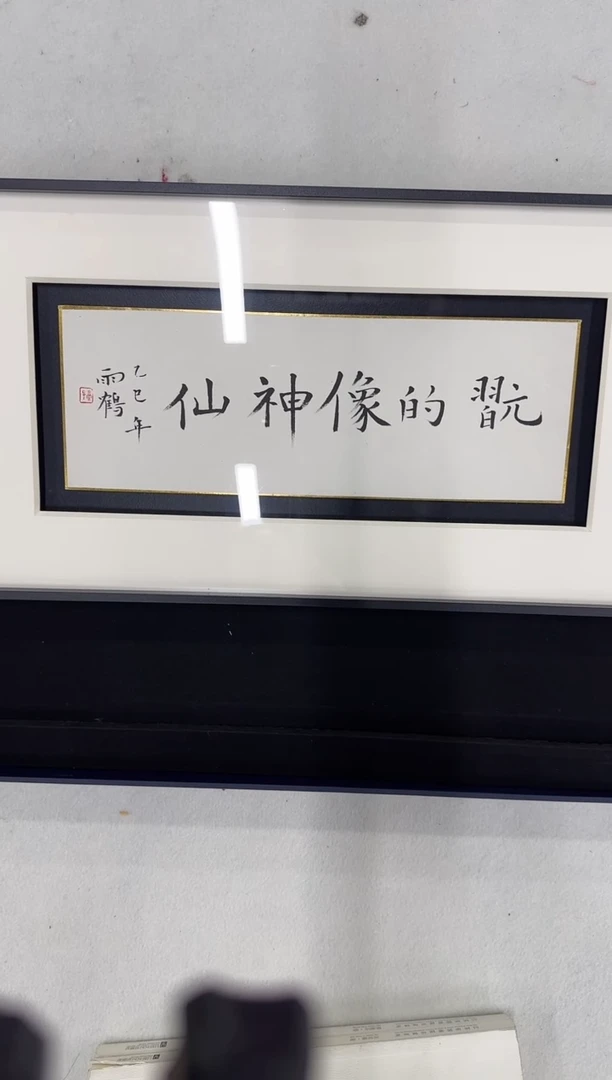 翫的像神仙
乙巳年
雨鶴